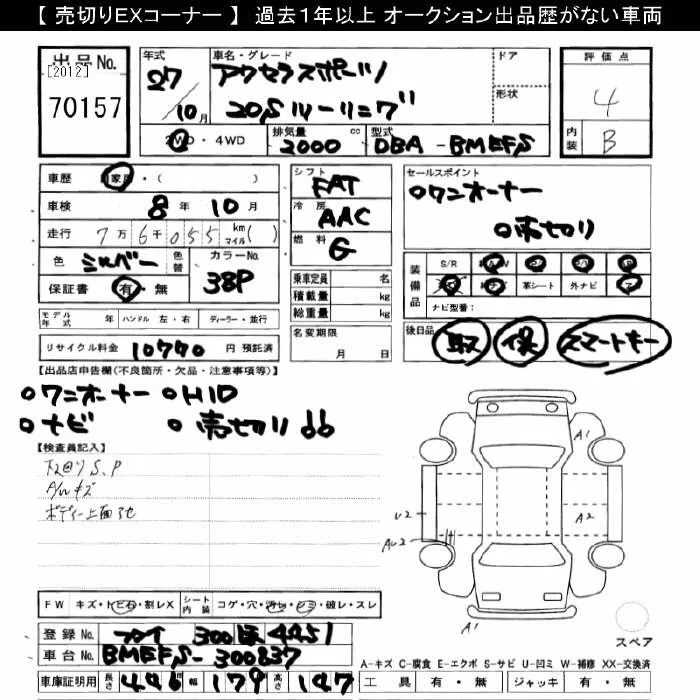 【 売切りEXコーナー 】 過去1年以上 オークション出品歴がない車両
出品No.
[2012]
70157
年式
27
10月
車名・グレード
アクセラスポーツ
20Sツーリング
ドア
形状
評価点
4
内装
B
2WD・4WD
排気量
2000 cc
型式
DBA-BMEFS
車歴 自家用・( )
車検 8年 10月
走行 7万6千055 km マイル( )
色 シルバー 色替
カラーNo. 38P
保証書 有・無
シフト FAT
冷房 AAC
燃料 G
乗車定員 名
積載量 kg
総重量 kg
セールスポイント
○ワンオーナー
○売切り
装備品
S/R
革シート 外ナビ
ナビ型番:
モデル年式 年 ハンドル 左・右 ディーラー・並行
リサイクル料金 10770 円 預託済
名変期限
月 日
後日品
取 保 スマートキー
【出品店申告欄(不良箇所・欠品・注意事項等)】
○ワンオーナー ○HID
○ナビ ○売切り
【検査員記入】
下回りS,P
A/Wキズ
A1
U2
AU2
A2
A1
FW キズ・トビ石・割レX シート内装 コゲ・穴・汚レ・シミ・破レ・スレ
スペア
登録No. 300 ほ 4451
車台No. BMEFS-300837
車庫証明用 長さ 446 幅 179 高さ 147
A-キズ C-腐食 E-エクボ S-サビ U-凹ミ W-補修 XX-交換済
工具 有・無 ジャッキ 有・無